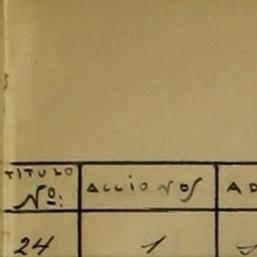 TITULO
Nº: ACCIONES AD
24 1